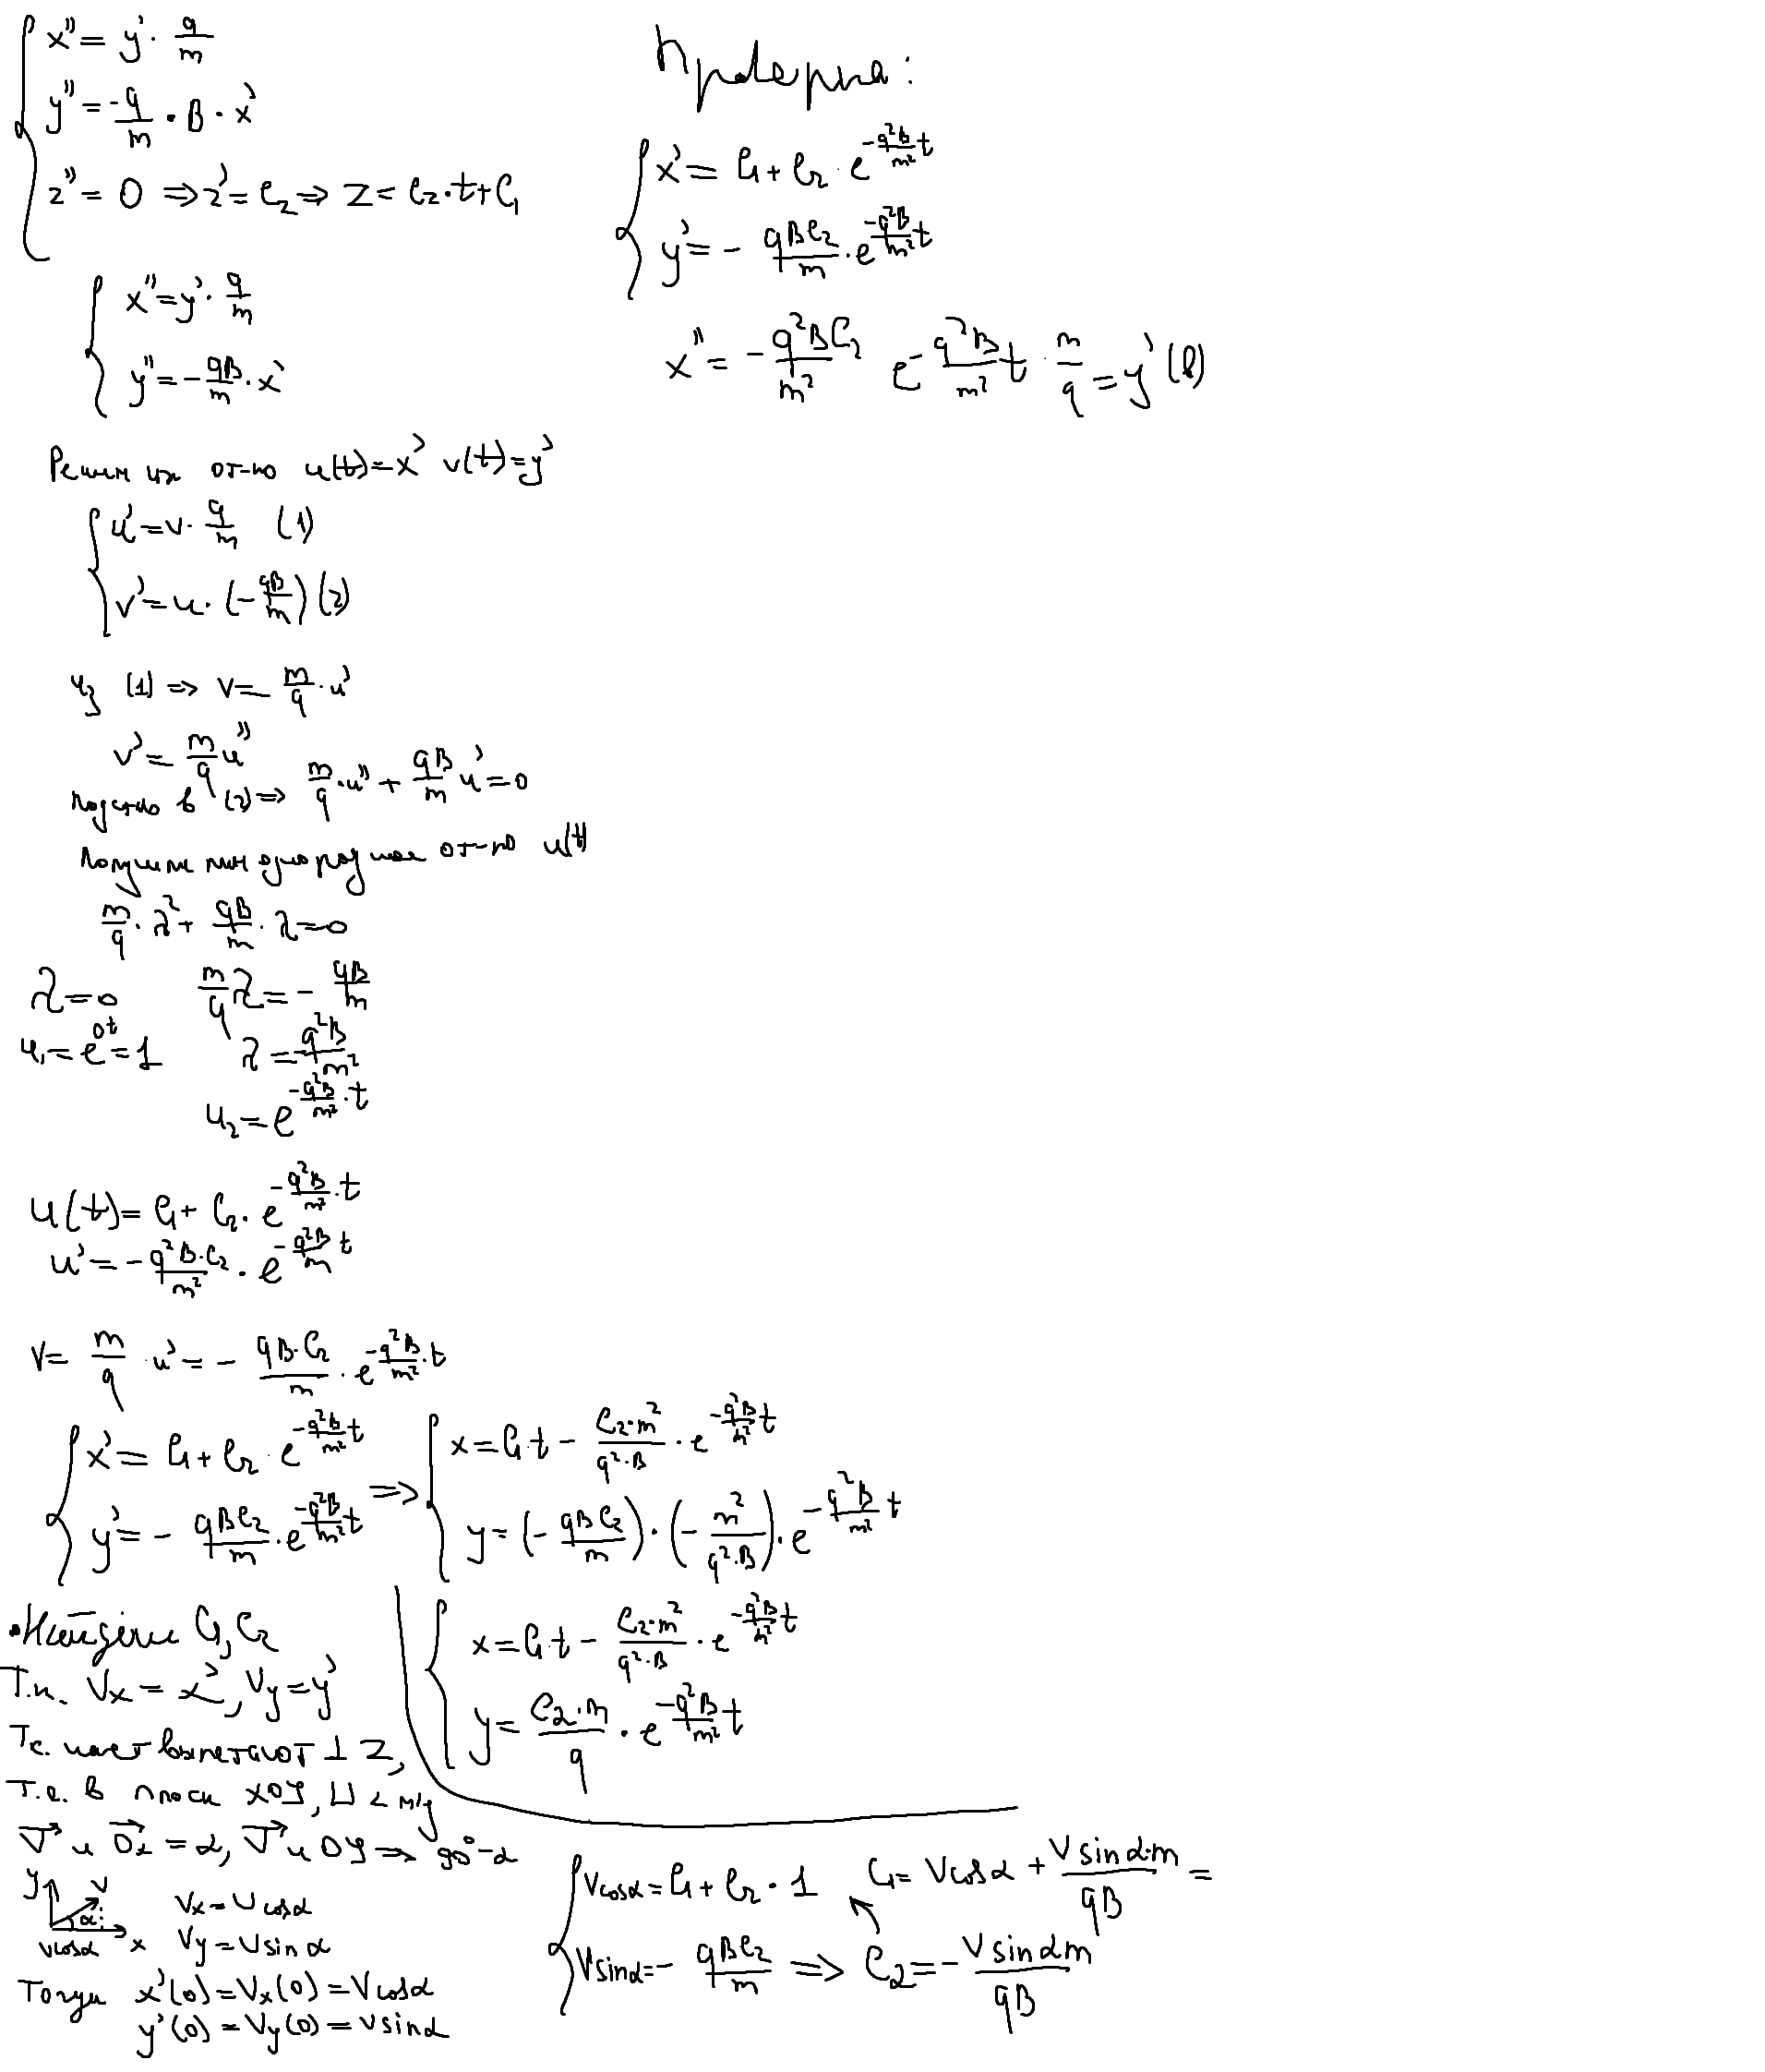 x'' = y' · q/m
y'' = -q/m · B · x'
z'' = 0 ⇒ z' = C₂ ⇒ z = C₂·t + C₁
x'' = y' · q/m
y'' = - qB/m · x'
Решим их от-но u(t) = x' v(t) = y'
u' = v · q/m (1)
v' = u · (- qB/m) (2)
Из (1) ⇒ v = m/q · u'
v' = m/q u''
подст в (2) ⇒ m/q · u'' + qB/m u' = 0
Получим лин однородное от-но u(t)
m/q · λ² + qB/m · λ = 0
λ = 0 m/q λ = - qB/m
u₁ = e^(0t) = 1 λ = - q²B/m²
u₂ = e^(-q²B/m² · t)
u(t) = C₁ + C₂ · e^(-q²B/m² · t)
u' = - q²B·C₂/m² · e^(-q²B/m t)
v = m/q · u' = - qB·C₂/m · e^(-q²B/m² · t)
x' = C₁ + C₂ · e^(-q²B/m² t)
y' = - qBC₂/m · e^(-q²B/m² t)
⇒
x = C₁·t - C₂·m²/(q²·B) · e^(-q²B/m² t)
y = (- qBC₂/m) · (- m²/(q²·B)) · e^(-q²B/m² t)
x = C₁·t - C₂·m²/(q²·B) · e^(-q²B/m² t)
y = C₂·m/q · e^(-q²B/m² t)
• Найдём C₁, C₂
Т.к. Vx = x', Vy = y'
Т.к. част вылетают ⊥ Z,
Т.е. в плоск XOY, и ∠ м/у
V⃗ и Ox⃗ = α, V⃗ и OY ⇒ 90° - α
y V α Vcosα x
Vx = V cosα
Vy = V sin α
Тогда x'(0) = Vx(0) = V cosα
y'(0) = Vy(0) = V sinα
Vcosα = C₁ + C₂ · 1
Vsinα = - qBC₂/m ⇒ C₂ = - V sinαm/qB
C₁ = Vcosα + V sinα·m/qB =
Проверка:
x' = C₁ + C₂ · e^(-q²B/m² t)
y' = - qBC₂/m · e^(-q²B/m² t)
x'' = - q²BC₂/m² e^(-q²B/m² t) · m/q = y' (в)